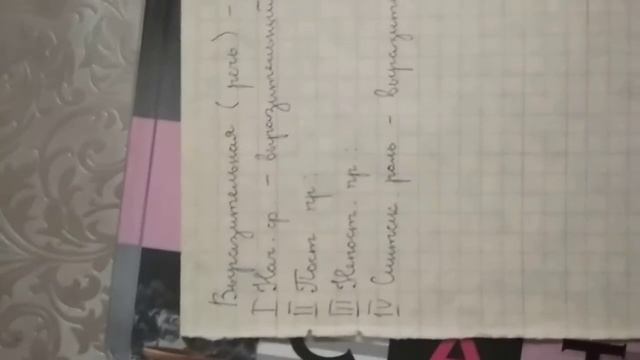 Выразительная (речь) -
I Нач. ф - выразительный
II Пост пр:
III Непост. пр:
IV Синтак роль - выразит